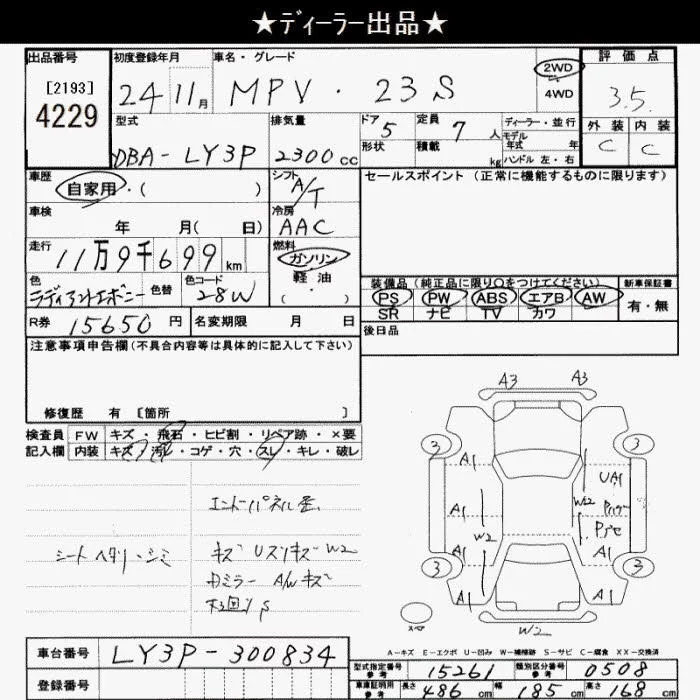 ★ディーラー出品★
出品番号
[2193]
4229
初度登録年月
24 11月
車名・グレード
MPV・23S
2WD
4WD
評価点
3.5
型式
DBA-LY3P
排気量
2300cc
ドア 5
形状
定員 7人
積載 kg
ディーラー・並行
モデル年式 年
ハンドル 左・右
外装 内装
C C
車歴
自家用・( )
シフト
A/T
セールスポイント(正常に機能するものに限ります)
車検
年 月( 日)
冷房
AAC
走行
11万9千699km
燃料
ガソリン
軽油
・( )
色
ラディアントエボニー
色替
色コード
28W
装備品(純正品に限り○をつけてください)
PS PW ABS エアB AW
SR ナビ TV カワ
新車保証書
有・無
R券 15650円
名変期限 月 日
後日品
注意事項申告欄(不具合内容等は具体的に記入して下さい)
修復歴 有 [箇所 ]
検査員
記入欄
FW キズ・飛石・ヒビ割・リペア跡・×要
内装 キズ・汚れ・コゲ・穴・スレ・キレ・破レ
シートヘタリ・シミ
エンドパネル歪
キズ Uスリキズ W2
カミラー A/Wキズ
下回りS
A3 A3
3 3
A1 UA1
W2
A1
W2
A1 A1
3 3
A1 A1
スペア
W2
A-キズ E-エクボ U-凹み W-補修跡 S-サビ C-腐食 XX-交換済
車台番号 LY3P-300834
登録番号
型式指定番号
参考
15261
類別区分番号
参考
0508
車庫証明用
参考
長さ 486cm 幅 185cm 高さ 168cm